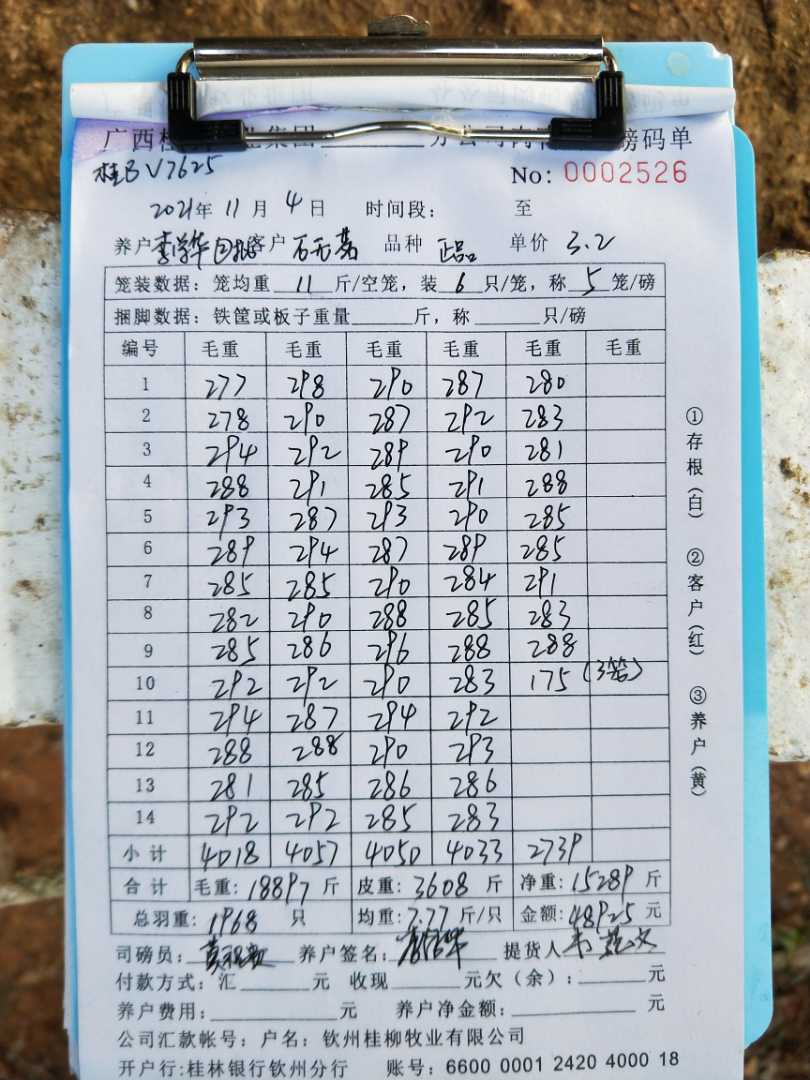 广西桂 集团 分公司内 磅码单
桂BV7625 No: 0002526
2021年 11月 4日 时间段: 至
养户 李学华 客户 石无 品种 正品 单价 3.2
笼装数据: 笼均重 11 斤/空笼, 装 6 只/笼, 称 5 笼/磅
捆脚数据: 铁筐或板子重量 斤, 称 只/磅
编号 毛重 毛重 毛重 毛重 毛重 毛重
1 277 298 290 287 280
2 278 290 287 292 283
3 294 292 289 290 281
4 288 291 285 291 288
5 293 287 293 290 285
6 289 294 287 289 285
7 285 285 290 284 291
8 282 290 288 285 283
9 285 286 296 288 288
10 292 292 290 283 175 (3笼)
11 294 287 294 292
12 288 288 290 293
13 281 285 286 286
14 292 292 285 283
小计 4018 4057 4050 4033 2739
合计 毛重: 18897 斤 皮重: 3608 斤 净重: 15289 斤
总羽重: 1968 只 均重: 7.77 斤/只 金额: 48925 元
司磅员: 养户签名: 提货人
付款方式: 汇 元 收现 元欠(余): 元
养户费用: 元 养户净金额: 元
公司汇款帐号: 户名: 钦州桂柳牧业有限公司
开户行: 桂林银行钦州分行 账号: 6600 0001 2420 4000 18
①存根(白) ②客户(红) ③养户(黄)